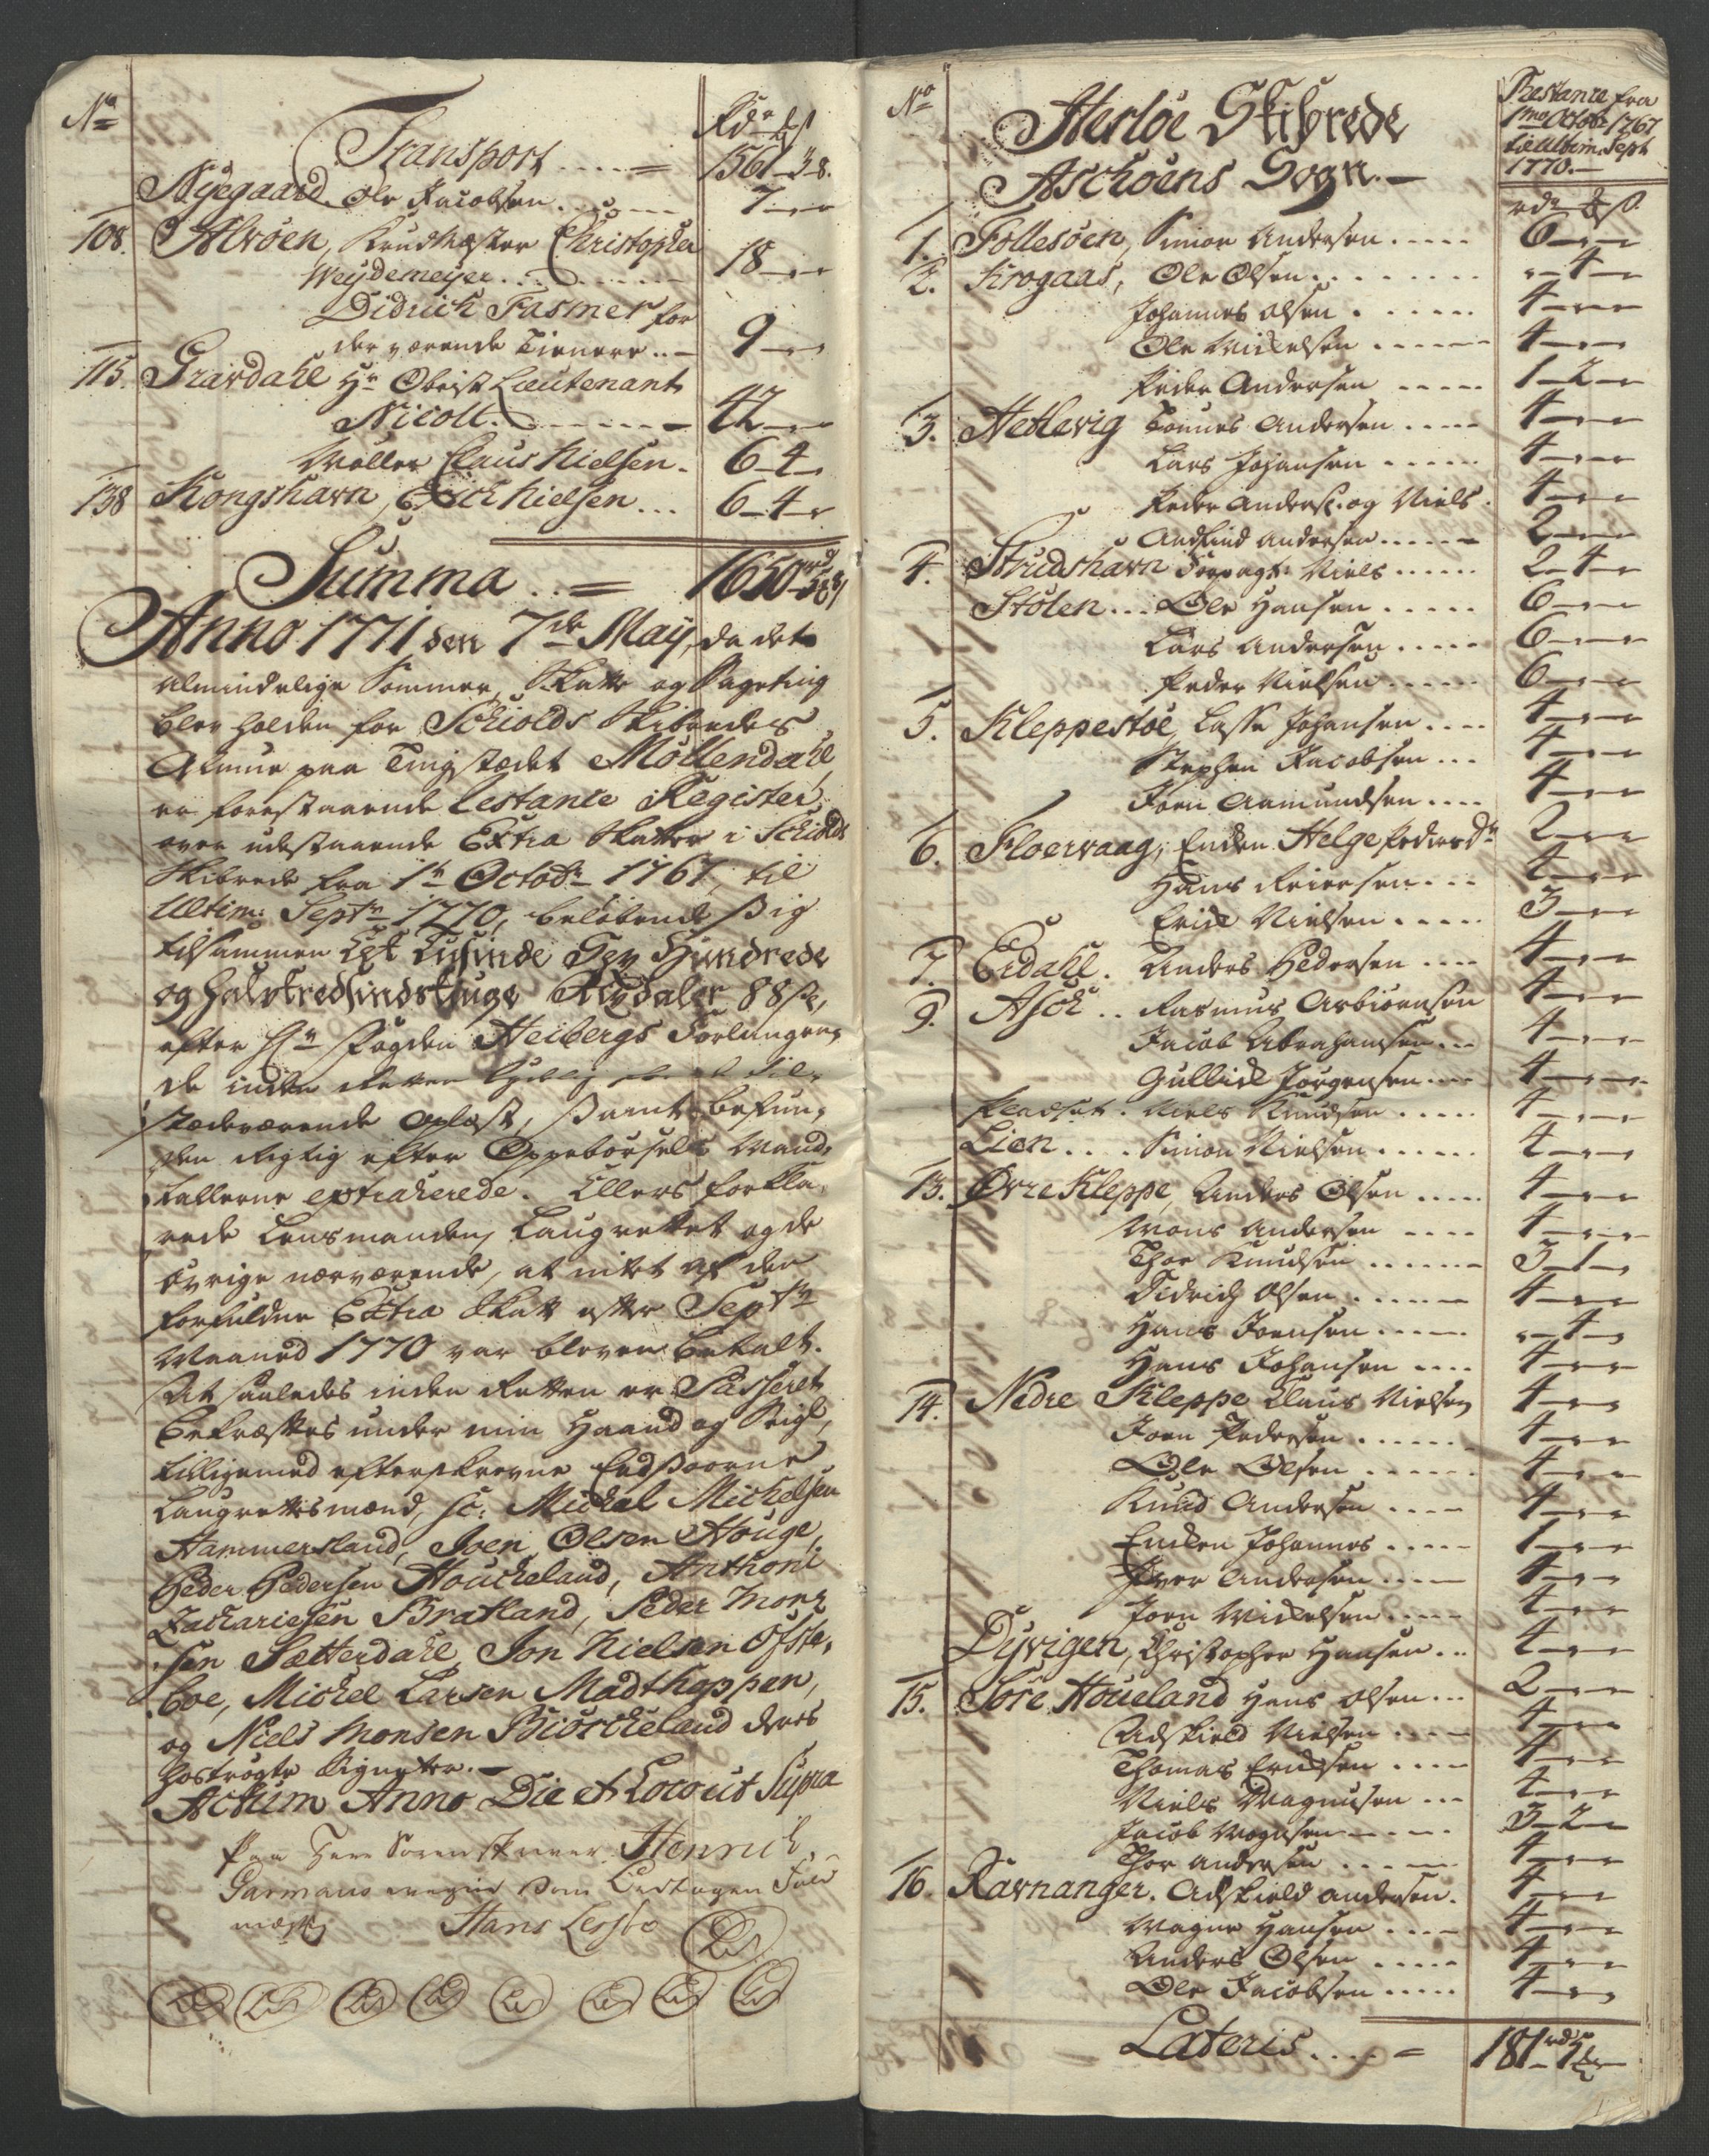 No
Rdr ß
Transport .... = 1561-3-8.
Nyegaard. Ole Jacobsen ..... 7-„-„
108. Alvöen, Krudtmester Christopher
Weydemeyer ......... 18-„-„
Didrich Fasmer for
der værende Tienere .. 9-„-„
115. Gravdahl Hr Obrist Lieutenant
Nicoll. ........ 42-„-„
Møller Claus Nielsen. 6-4-„
138 Kongshavn, Erich Nielsen ... 6-4-„
Summa .. = 1650rd-5-8ß
Anno 1771, den 7de Maij, da det
almindelige Sommer, Skatte og Sageting
blev holden for Schiolds Skibredes
Almue paa Tingstædet Möllendahl,
er forestaaende Restance Register
over udestaaende Extra Skatter i Schiolds
Skibrede fra 1te Octobr 1767, til
Ultim: Septr 1770, beløbende sig
tilsammen Et Tusinde Sex Hundrede
og halvtredsindstyge Rixdaler 88 ß,
efter Hr Fogden Heibergs Forlangen,
de inden Retten
stædeværende oplæst, samt befun,
den rigtig efter Oppebørsels Mand,
tallerne extraherede. Ellers forkla,
rede Lensmanden, Laugrettet og de
øvrige nærværende, at intet af den
forfaldne Extra Skatt efter Septr
Maaned 1770 var bleven betalt.
At saaledes inden Retten er Passeret
bekræftes under min Haand og Seigl,
tilligemed efterskrevne Eedsvorne
Laugrettesmænd, sc: Michel Michelsen
Hammersland, Iven Olsen Houge,
Peder Pedersen Houcheland, Anthoni
Zachariesen Bratland, Peder Mons,
sen Sætterdahl, Jon Nielsen Ofste,
boe, Michel Larsen Madthoppen,
og Niels Monsen Biörcheland deres
hostrøgte Signeter. -
Actum Anno Die et Loco ut Supra
Paa Herr Sorenskriver Henrich
Garmans vegne som Eedtagen Fuld
mægtig Hans Lessøe
No
Herlöe Skibrede
Aschöens Sogn. -
Restance fra
1mo Octobr 1767
til Ultim: Septr
1770. -
rdr ß.
1. Follesöen, Simon Andersen ..... 6-„-„
2. Krogaas, Ole Olsen ........ „-4-„
Johannes Olsen ...... 4-„-„
Ole Mickelsen ...... 4-„-„
Peder Andersen ..... 1-2-„
3. Hetlevig Tønnes Andersen ..... 4-„-„
Lars Johansen ..... 4-„-„
Peder Anders. og Niels . 4-„-„
Audskind Andersen ..... 2-„-„
4. Strudshavn Forpagtr Niels ..... 2-4-„
Stölen ... Ole Hansen ..... 6-„-„
Lars Andersen ..... 6-„-„
Peder Nielsen ..... 6-„-„
5. Kleppestöe, Lasse Johansen .... 4-„-„
Stephen Jacobsen ... 4-„-„
Joen Aamundsen .... 4-„-„
6. Floervaag, Enken Helge Pedersdr 2-„-„
Hans Reiersen ... 4-„-„
Erick Nielsen ..... 3-„-„
7. Eidahl. Anders Pedersen .... 4-„-„
9. Asch .. Rasmus Arbiörnsen 4-„-„
Jacob Abrahamsen ... 4-„-„
Gullick Jörgensen .... 4-„-„
Niels Knudsen ..... 4-„-„
Lien .... Simon Nielsen ...... 4-„-„
13. Øvre Kleppe, Anders Olsen ..... 4-„-„
Mons Andersen .... 4-„-„
Thor Knudsen ...... 3-1-„
Didrich Olsen ...... 4-„-„
Hans Joensen ..... „-4-„
Hans Johansen .... 4-„-„
14. Nedre Kleppe Claus Nielsen 4-„-„
Joen Pedersen ...... 4-„-„
Ole Olsen ...... 4-„-„
Knud Andersen .... 4-„-„
Enken Johannes ..... 1-„-„
Iver Andersen ..... 4-„-„
Joen Mickelsen ..... 4-„-„
Dyvigen, Christopher Hansen ... 4-„-„
15. Söre Houeland Hans Olsen ... 2-„-„
Adskield Nielsen .... 4-„-„
Thomas Ericksen .... 4-„-„
Niels Magnusen ... 4-„-„
Jacob Mogensen ..... 3-2-„
Thor Andersen ..... 4-„-„
16. Ravnanger. Adskield Andersen. 4-„-„
Magne Hansen .... 4-„-„
Anders Olsen ..... 4-„-„
Ole Jacobsen ..... 4-„-„
Lateris .... = 181rd-1-„